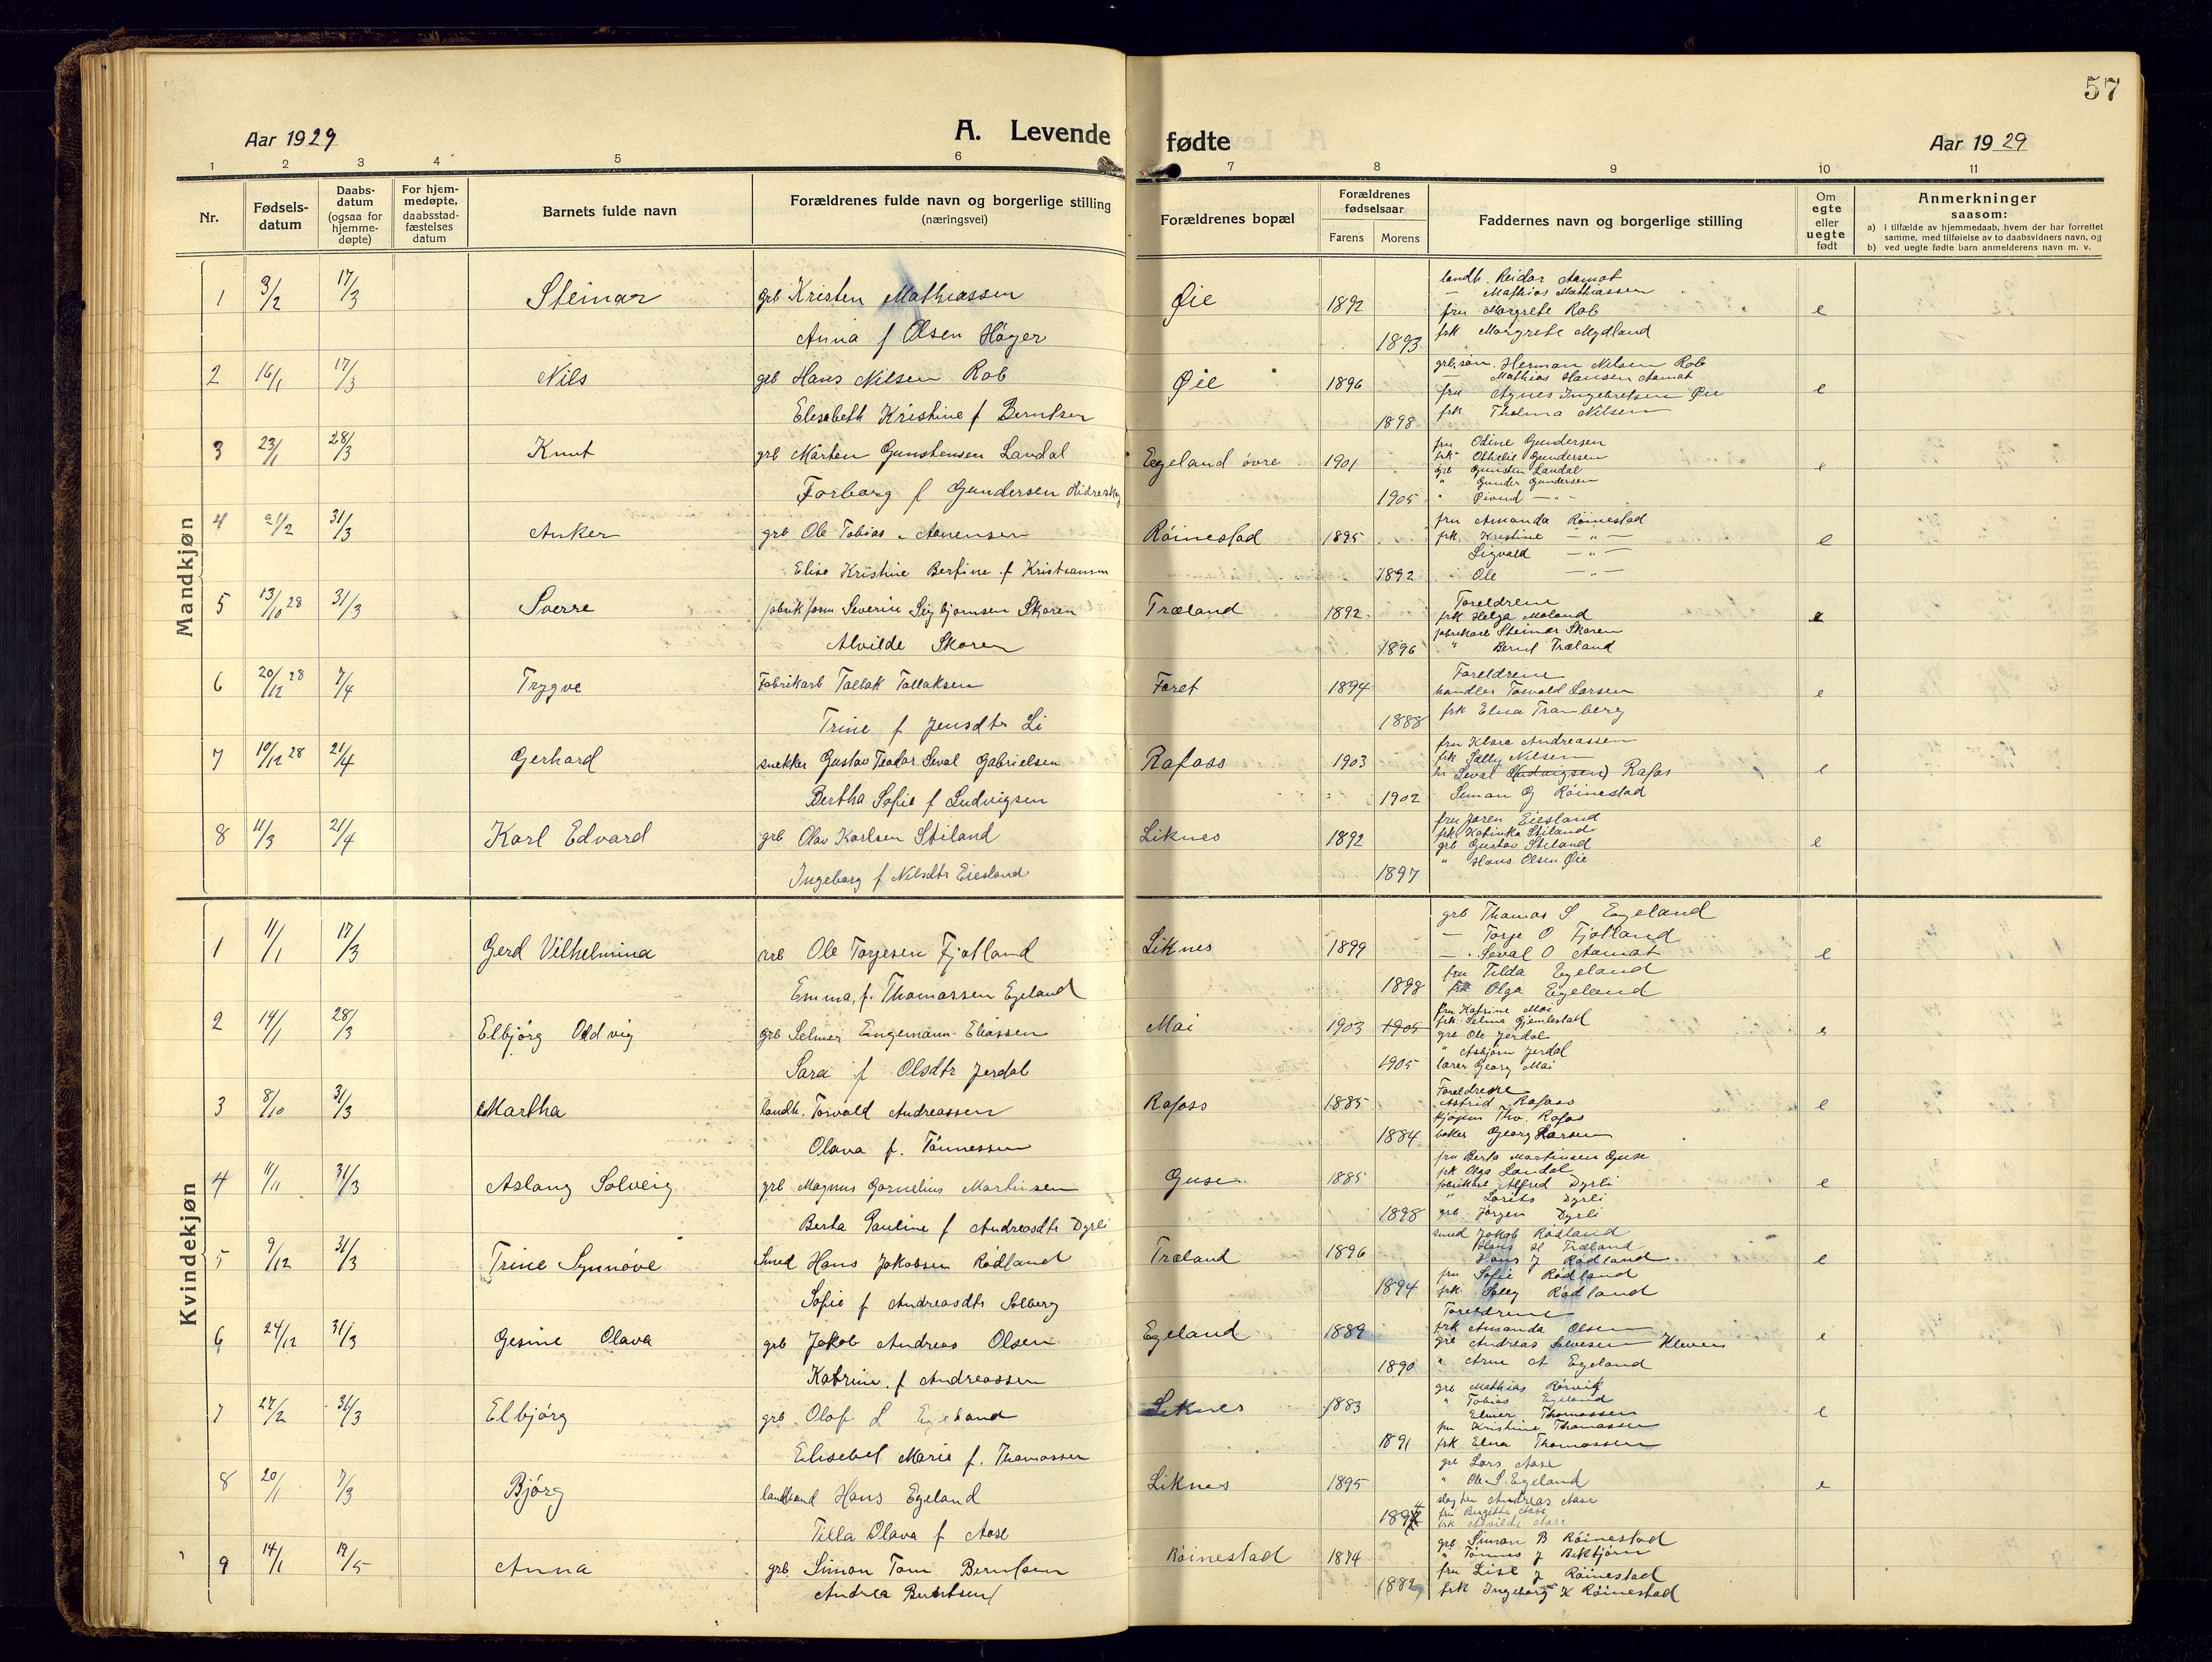 57
Aar 1929
A. Levende fødte
Aar 1929
1 2 3 4 5 6 7 8 9 10 11
Nr.
Fødsels-datum
Daabs-datum (ogsaa for hjemme-døpte)
For hjem-medøpte, daabsstad-fæstelses datum
Barnets fulde navn
Forældrenes fulde navn og borgerlige stilling (næringsvei)
Forældrenes bopæl
Forældrenes fødselsaar
Farens Morens
Faddernes navn og borgerlige stilling
Om egte eller uegte født
Anmerkninger saasom:
a) i tilfælde av hjemmedaab, hvem der har forrettet samme, med tilføielse av to daabsvidners navn, og
b) ved uegte fødte barn anmelderens navn m. v.
Mandkjøn
1 9/2 17/3 Steinar grb Kristen Mathiassen Øie 1892 e
Anna f Olsen Høyer 1893
landh. Reidar Aamot
— Mathias Mathiassen
fru Margrete Rob
frk Margrete Mydland
2 16/1 17/3 Nils grb Hans Nilsen Rob Øie 1896 e
Elisabeth Kristine f Berntsen 1898
grb.søn. Herman Nilsen Rob
— Mathias Hansen Aamot
fru Agnes Ingebretsen Øie
frk Thelma Nilsen
3 23/1 28/3 Knut grb Mårten Gunstensen Landal Egeland øvre 1901 e
Torborg f Gundersen 1905
fru Odine Gundersen
frk Othelie Gundersen
grb Gunsten Landal
" Gunder Gundersen
" Øivind — " —
4 21/2 31/3 Anker grb Ole Tobias Aanensen Røinestad 1895 e
Elise Kristine Bertine f Kristiansen 1892
fru Amanda Røinestad
frk Kristine — " —
Sigvald — " —
Ole — " —
5 13/10 28 31/3 Sverre Severin Sigbjørnsen Skoren Træland 1892 e
Alvilde Skoren 1896
Foreldrene
frk Helga Moland
fabrikarb Steinar Skoren
" Bernt Træland
6 20/12 28 7/4 Trygve Fabrikarb Tallak Tallaksen Foret 1894 e
Trine f Jensdtr Li 1888
Foreldrene
handler Torvald Larsen
frk Elna Tranberg
7 10/12 28 21/4 Gerhard snekker Gustav Teodor Seval Gabrielsen Rafoss 1903 e
Bertha Sofie f Ludvigsen 1902
fru Klara Andreassen
frk Sally Nilsen
Seval (Ludvigsen) Rafos
Simon Røinestad
8 11/3 21/4 Karl Edvard grb Olav Karlsen Stiland Liknes 1892 e
Ingeborg f Nilsdtr Eiesland 1897
fru Joren Eiesland
frk Katinka Stiland
grb Gustav Stiland
" Hans Olsen Øie
Kvindekjøn
1 11/1 17/3 Gerd Vilhelmina Ole Torjesen Fjotland Liknes 1899 e
Emma f. Thomassen Egeland 1898
grb Thomas S Egeland
— Torje O Fjotland
— Seval O Aamot
fru Tilda Egeland
frk Olga Egeland
2 14/1 28/3 Elbjørg Oddvig grb Selmer Engemann Eliassen Moi 1903 1905 e
Sara f Olsdtr Jerdal 1905
fru Katrine Moi
frk. Selma Gjemlestad
grb Ole Jerdal
" Asbjørn Jerdal
lærer Georg Moi
3 8/10 31/3 Martha landh. Torvald Andreassen Rafoss 1885 e
Olava f. Tønnessen 1884
Foreldrene
Astrid Rafoss
kjøpm Tho. Rafos
baker Georg Larsen
4 11/11 31/3 Aslaug Solveig grb Magnus Gornelius Martinsen Guse 1885 e
Berta Pauline f Andreasdtr Dyrli 1898
fru Berta Martinsen Guse
frk Olga Landal
fabrikarb Alfred Dyrli
" Lorits Dyrli
grb Jørgen Dyrli
5 9/12 31/3 Trine Synnøve Smed Hans Jakobsen Rødland Træland 1896 e
Sofie f Andreasdtr Solberg 1894
smed Jakob Rødland
Hans H Træland
Hans J Rødland
fru Sofie Rødland
frk Solly Rødland
6 24/12 31/3 Gesine Olava grb Jakob Andreas Olsen Egeland 1889 e
Katrine f Andreassen 1890
Foreldrene
frk Amanda Olsen
grb Andreas Salvesen Kleven
" Arne A Egeland
7 27/2 31/3 Elbjørg grb Olaf L Egeland Liknes 1883 e
Elisebet Marie f. Thomassen 1891
grb Mathias Rørvig
" Tobias Egeland
Elmer Thomassen
fru Kristine Thomassen
frk Elna Thomassen
8 20/1 7/3 Bjørg landhand Hans Egeland Liknes 1895 e
Tilla Olava f Aase 1894
grb Lars Aase
" Ole S. Egeland
slagter Andreas Aase
fru Birgitte Aase
frk Alvilde Aase
9 14/1 19/5 Anna grb Simon Tom Berntsen Røinestad 1874
Andrea Berntsen 1882
grb Simon B Røinestad
" Tønnes J Birkbjørn
fru Lise J Røinestad
frk Ingeborg K Røinestad